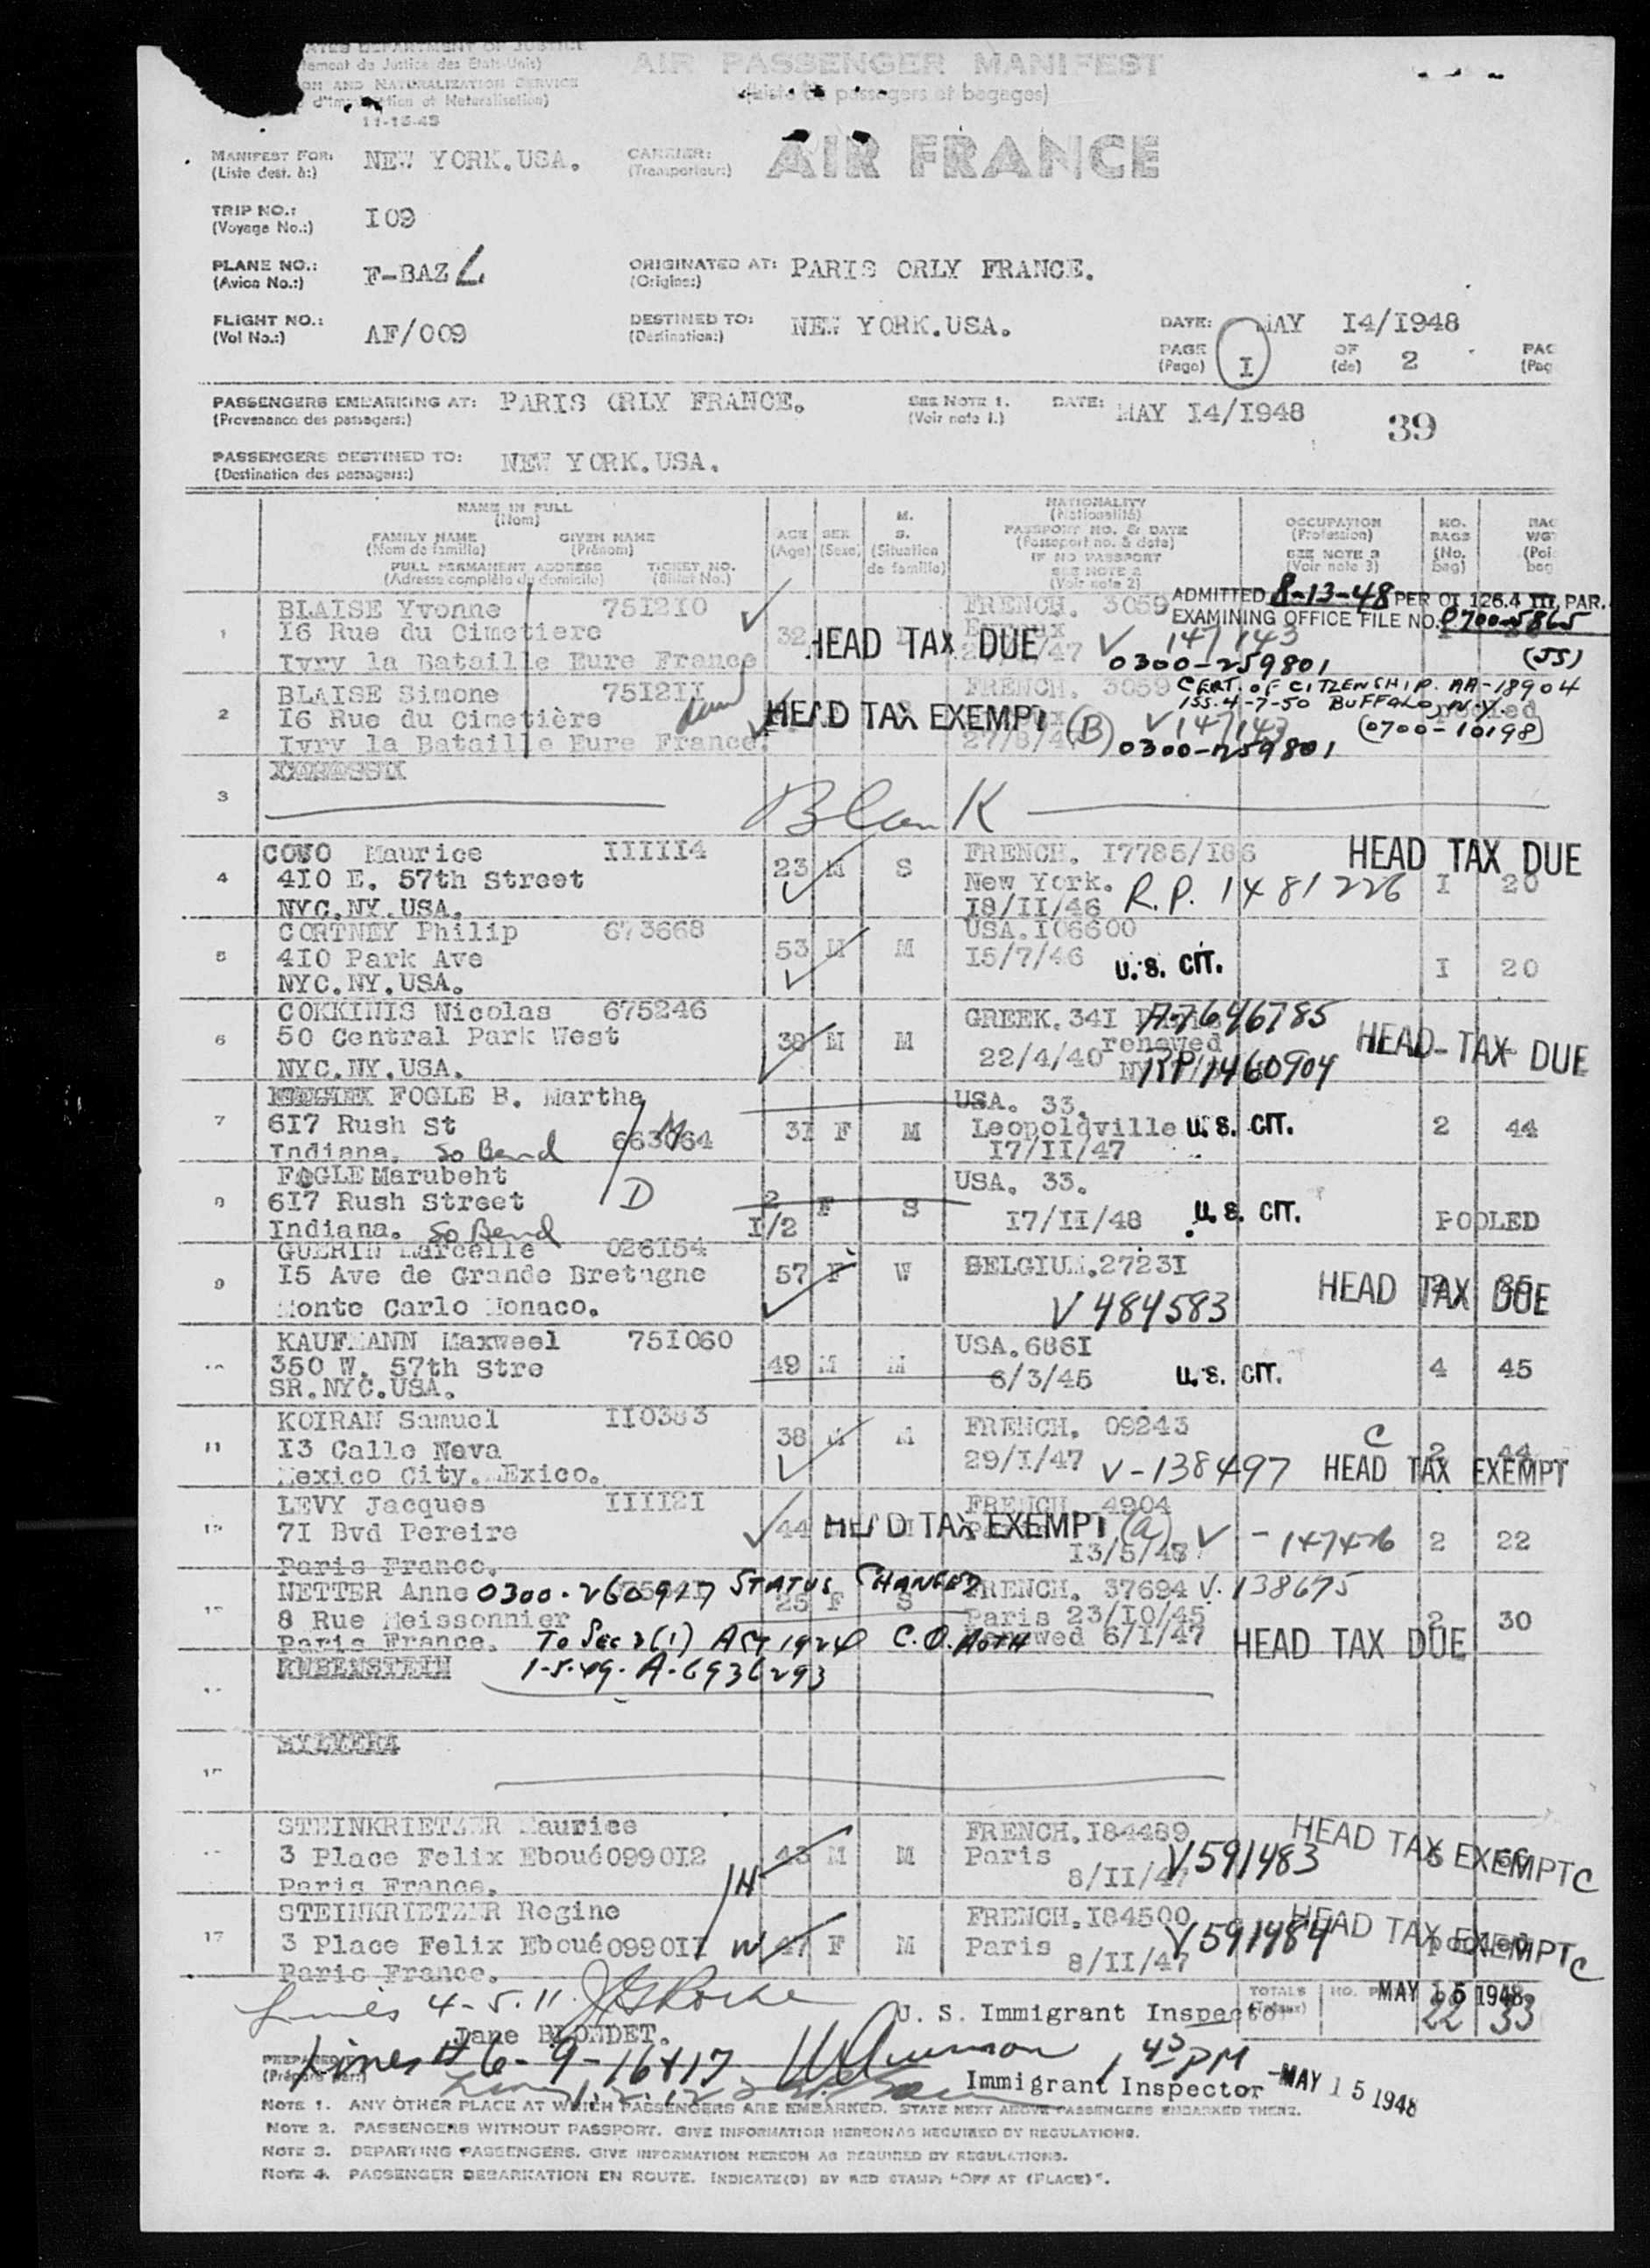 AIR PASSENGER MANIFEST
(Liste de passagers et bagages)
11-15-45
MANIFEST FOR: NEW YORK.USA. CARRIER: AIR FRANCE
(Liste dest. à:) (Transporteur:)
TRIP NO.: I09
(Voyage No.:)
PLANE NO.: F-BAZL ORIGINATED AT: PARIS ORLY FRANCE.
(Avion No.:) (Origine:)
FLIGHT NO.: AF/009 DESTINED TO: NEW YORK.USA. DATE: MAY I4/I948
(Vol No.:) (Destination:)
PAGE I OF 2
(Page) (de)
PASSENGERS EMBARKING AT: PARIS ORLY FRANCE. SEE NOTE 1. DATE: MAY I4/I948
(Provenance des passagers:) (Voir note 1.)
39
PASSENGERS DESTINED TO: NEW YORK.USA.
(Destination des passagers:)
NAME IN FULL
(Nom)
FAMILY NAME GIVEN NAME
(Nom de famille) (Prénom)
FULL PERMANENT ADDRESS TICKET NO.
(Adresse complète du domicile) (Billet No.)
AGE SEX M. S.
(Age) (Sexe) (Situation de famille)
NATIONALITY
(Nationalité)
PASSPORT NO. & DATE
(Passeport no. & date)
IF NO PASSPORT
SEE NOTE 2
(Voir note 2)
OCCUPATION
(Profession)
SEE NOTE 3
(Voir note 3)
NO. BAGS
(No. bag)
ADMITTED 8-13-48 PER OI 126.4 III, PAR.
EXAMINING OFFICE FILE NO. 0700-5865
(JS)
1 BLAISE Yvonne 75I2I0 FRENCH. 3059
I6 Rue du Cimetiere 32 HEAD TAX DUE V 147143
Ivry la Bataille Eure France 0300-259801
2 BLAISE Simone 75I2II FRENCH. 3059 CERT. OF CITZENSHIP. AA-18904
ISS. 4-7-50 BUFFALO, N.Y.
I6 Rue du Cimetière HEAD TAX EXEMPT (B) V 147143 pooled
(0700-10198)
Ivry la Bataille Eure France. 27/8/4 0300-259801
3 Blank
4 COVO Maurice IIIII4 23 M S FRENCH. I7785/I86 HEAD TAX DUE
4I0 E. 57th Street New York. R.P. 1481226 I 20
NYC.NY.USA. I8/II/46
5 CORTNEY Philip 673668 53 M M USA.I06600
4I0 Park Ave I5/7/46 U.S. CIT. I 20
NYC.NY.USA.
6 COKKINIS Nicolas 675246 38 M M GREEK.34I A-7646785
50 Central Park West renewed HEAD TAX DUE
NYC.NY.USA. 22/4/40 RP 1460904
7 FOGLE B. Martha USA. 33.
6I7 Rush St 663064 M 3I F M Leopoldville U.S. CIT. 2 44
Indiana. So Bend I7/II/47
8 FOGLE Marubeht USA. 33.
6I7 Rush Street D 2 I/2 F S I7/II/48 U.S. CIT. POOLED
Indiana. So Bend
9 GUERIN Marcelle 026I54 57 F W BELGIUM.2723I
I5 Ave de Grande Bretagne HEAD TAX DUE
Monte Carlo Monaco. V 484583
KAUFMANN Maxweel 75I060 49 M M USA.686I
350 W. 57th Stre 6/3/45 U.S. CIT. 4 45
SR.NYC.USA.
11 KOIRAN Samuel II0383 38 M M FRENCH. 09243 C
I3 Calle Neva 29/I/47 V-138497 2 44
Mexico City.MExico. HEAD TAX EXEMPT
LEVY Jacques IIII2I 44 FRENCH 4904
7I Bvd Pereire HEAD TAX EXEMPT (a) V-147476 2 22
Paris France. I3/5/48
NETTER Anne 0300-260927 STATUS CHANGED 25 F S FRENCH. 37694 V. 138675
8 Rue Meissonnier Paris 23/I0/45 2 30
Paris France. To Sec 3(1) ACT 1924 C.O. renewed 6/I/47 HEAD TAX DUE
RUBENSTEIN 1-5-49. A-6936293
STEINKRIETZER Maurice FRENCH.I84489 HEAD TAX EXEMPT C
3 Place Felix Eboué 0990I2 H M M Paris V591483
Paris France. 8/II/47
17 STEINKRIETZER Regine FRENCH.I84500 HEAD TAX EXEMPT C
3 Place Felix Eboué 0990II W 47 F M Paris V591484 pooled
Paris France. 8/II/47
Lines 4-5.11. U. S. Immigrant Inspector TOTALS MAY 15 1948
22 33
Jane BLONDET.
Lines # 6-9-16+17 1 45 PM
Immigrant Inspector MAY 15 1948
NOTE 1. ANY OTHER PLACE AT WHICH PASSENGERS ARE EMBARKED. STATE NEXT ABOVE PASSENGERS EMBARKED THERE.
NOTE 2. PASSENGERS WITHOUT PASSPORT. GIVE INFORMATION HEREON AS REQUIRED BY REGULATIONS.
NOTE 3. DEPARTING PASSENGERS. GIVE INFORMATION HEREON AS REQUIRED BY REGULATIONS.
NOTE 4. PASSENGER DEBARKATION EN ROUTE. INDICATE(D) BY RED STAMP: "OFF AT (PLACE)".